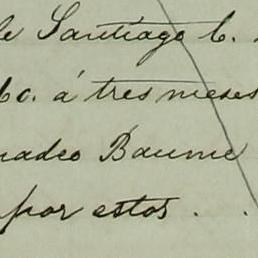 de Santiago C.
60. á tres meses
madeo Baume
por estos . .